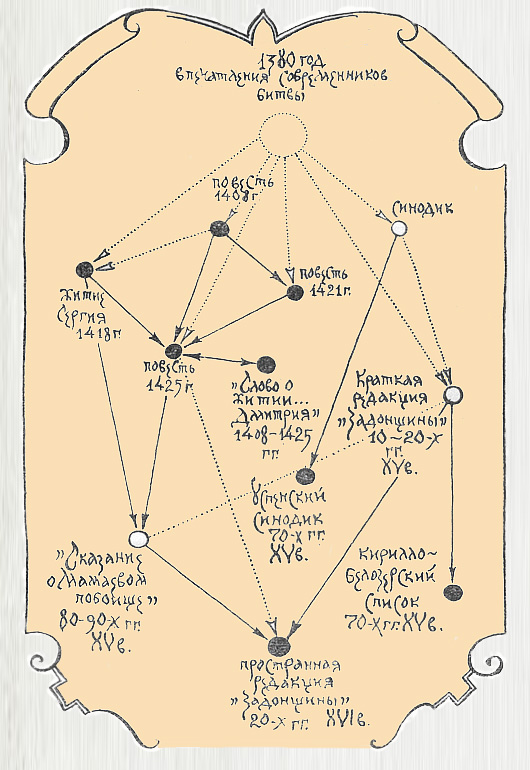 1380 год
впечатления современников
битвы
повесть
1408г
синодик
повесть
1421г.
житие
Сергия
1418г.
повесть
1425г.
"Слово о
житии...
Дмитрия"
1408-1425
гг.
Краткая
редакция
"Задонщины"
10-20-х
гг.
XVв.
Успенский
синодик
70-х гг.
XVв.
"Сказание
о Мамаевом
побоище"
80-90-х гг.
XVв.
Кирилло-
Белозерский
список
70-х гг. XVв.
пространная
редакция
"Задонщины"
20-х гг. XVIв.